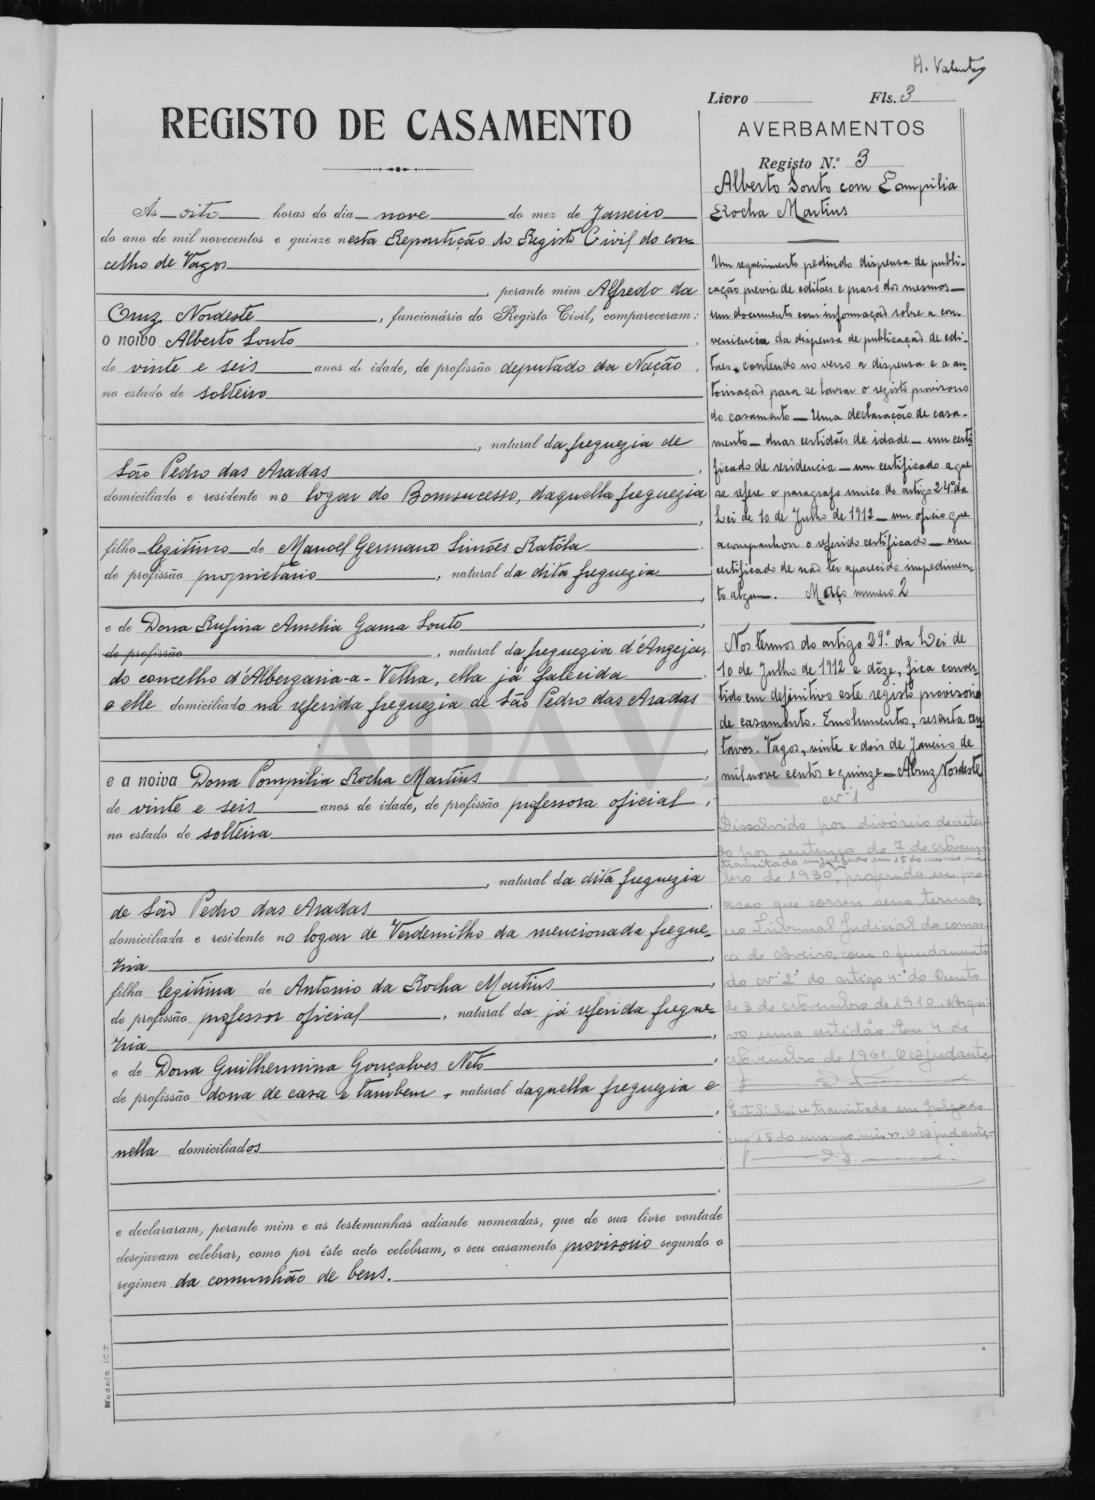 A. Valente
Livro Fls. 3
REGISTO DE CASAMENTO
Ás oito horas do dia nove do mez de Janeiro
do ano de mil novecentos e quinze nesta Repartição do Registo Civil do con-
celho de Vagos
, perante mim Alfredo da
Cruz Nordeste, funcionário do Registo Civil, compareceram:
o noivo Alberto Souto
de vinte e seis anos de idade, de profissão deputado da Nação,
no estado de solteiro
, natural da freguezia de
São Pedro das Aradas,
domiciliado e residente no logar do Bomsucesso, daquella freguezia
,
filho legitimo de Manoel Germano Simões Ratóla
de profissão proprietario, natural da dita freguezia
,
e de Dona Rufina Amelia Gama Souto,
de profissão, natural da freguezia d'Angeja,
do concelho d'Albergaria-a-Velha, ella já falecida
e elle domiciliado na referida freguezia de São Pedro das Aradas
,
e a noiva Dona Pompilia Rocha Martins,
de vinte e seis anos de idade, de profissão professora oficial,
no estado de solteira
, natural da dita freguezia
de São Pedro das Aradas,
domiciliada e residente no logar de Verdemilho da mencionada fregue-
zia,
filha legitima de Antonio da Rocha Martins,
de profissão professor oficial, natural da já referida fregue-
zia,
e de Dona Guilhermina Gonçalves Neto,
de profissão dona de casa e tambem, natural daquella freguezia e
,
nella domiciliados
e declararam, perante mim e as testemunhas adiante nomeadas, que de sua livre vontade
desejavam celebrar, como por êste acto celebram, o seu casamento provisorio segundo o
regimen da comunhão de bens.
Modelo 10
AVERBAMENTOS
Registo N.º 3
Alberto Souto com Pompilia
Rocha Martins
Um requerimento pedindo dispensa de publi-
cação previa de editaes e praso dos mesmos —
um documento com informação sobre a con-
veniencia da dispensa de publicação de edi-
taes, contendo no verso a dispensa e a au-
torisação para se lavrar o registo provisorio
do casamento — Uma declaração de casa-
mento — duas certidões de idade — um certi-
ficado de residencia — um certificado a que
se refere o paragrafo unico do artigo 24º da
Lei de 10 de Julho de 1912 — um oficio que
acompanhou o referido certificado — um
certificado de não ter aparecido impedimen-
to algum. Maço numero 2
Nos termos do artigo 29º da Lei de
10 de Julho de 1912 e dôze, fica conver-
tido em definitivo este registo provisorio
de casamento. Emolumentos, sesenta cen-
tavos. Vagos, vinte e dois de Janeiro de
mil nove cento e quinze — ACruz Nordeste
Nº 1
Dissolvido por divórcio decreta-
do por sentença de 7 de Novem-
transitada em julgado em 15 do mesmo mês
bro de 1930, proferida em pro-
cesso que correu seus termos
no Tribunal Judicial da comar-
ca de Aveiro, com o fundamento
do nº 2º do artigo 4º do Decreto
de 3 de Novembro de 1910. Arqui-
vo uma certidão. Em 4 de
Novembro de 1961. O ajudante,
Entrelinhei: transitada em julgado
em 15 do mesmo mês. O ajudante,
ADAVR